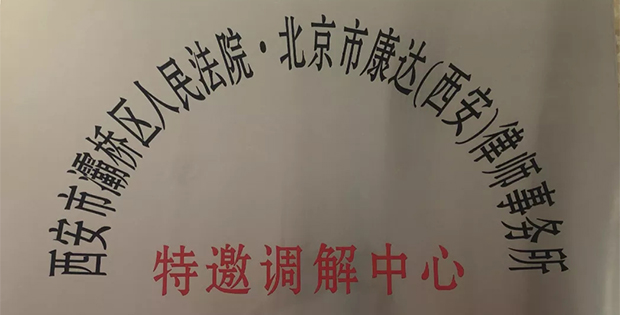 西安市灞桥区人民法院·北京市康达(西安)律师事务所
特邀调解中心